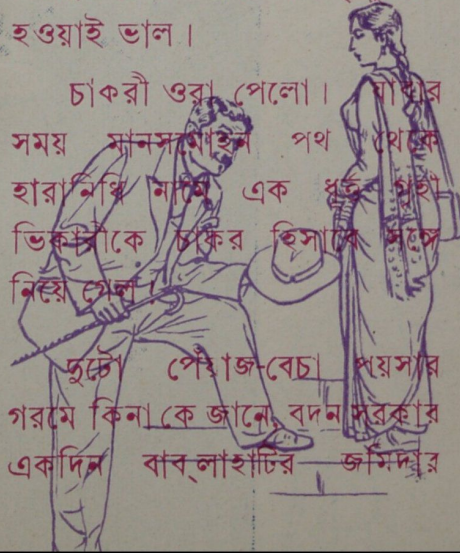 হওয়াই ভাল।
চাকরী ওরা পেলো। যাবার
সময় মানসমোহন পথ থেকে
হারানিধি নামে এক ধূর্ত গুহা
ভিকারীকে চাকর হিসাবে সঙ্গে
নিয়ে গেল।
দুটো পেঁয়াজ-বেচা পয়সার
গরমে কিনা কে জানে, বদন সরকার
একদিন বাব্‌লাহাটির জমিদার